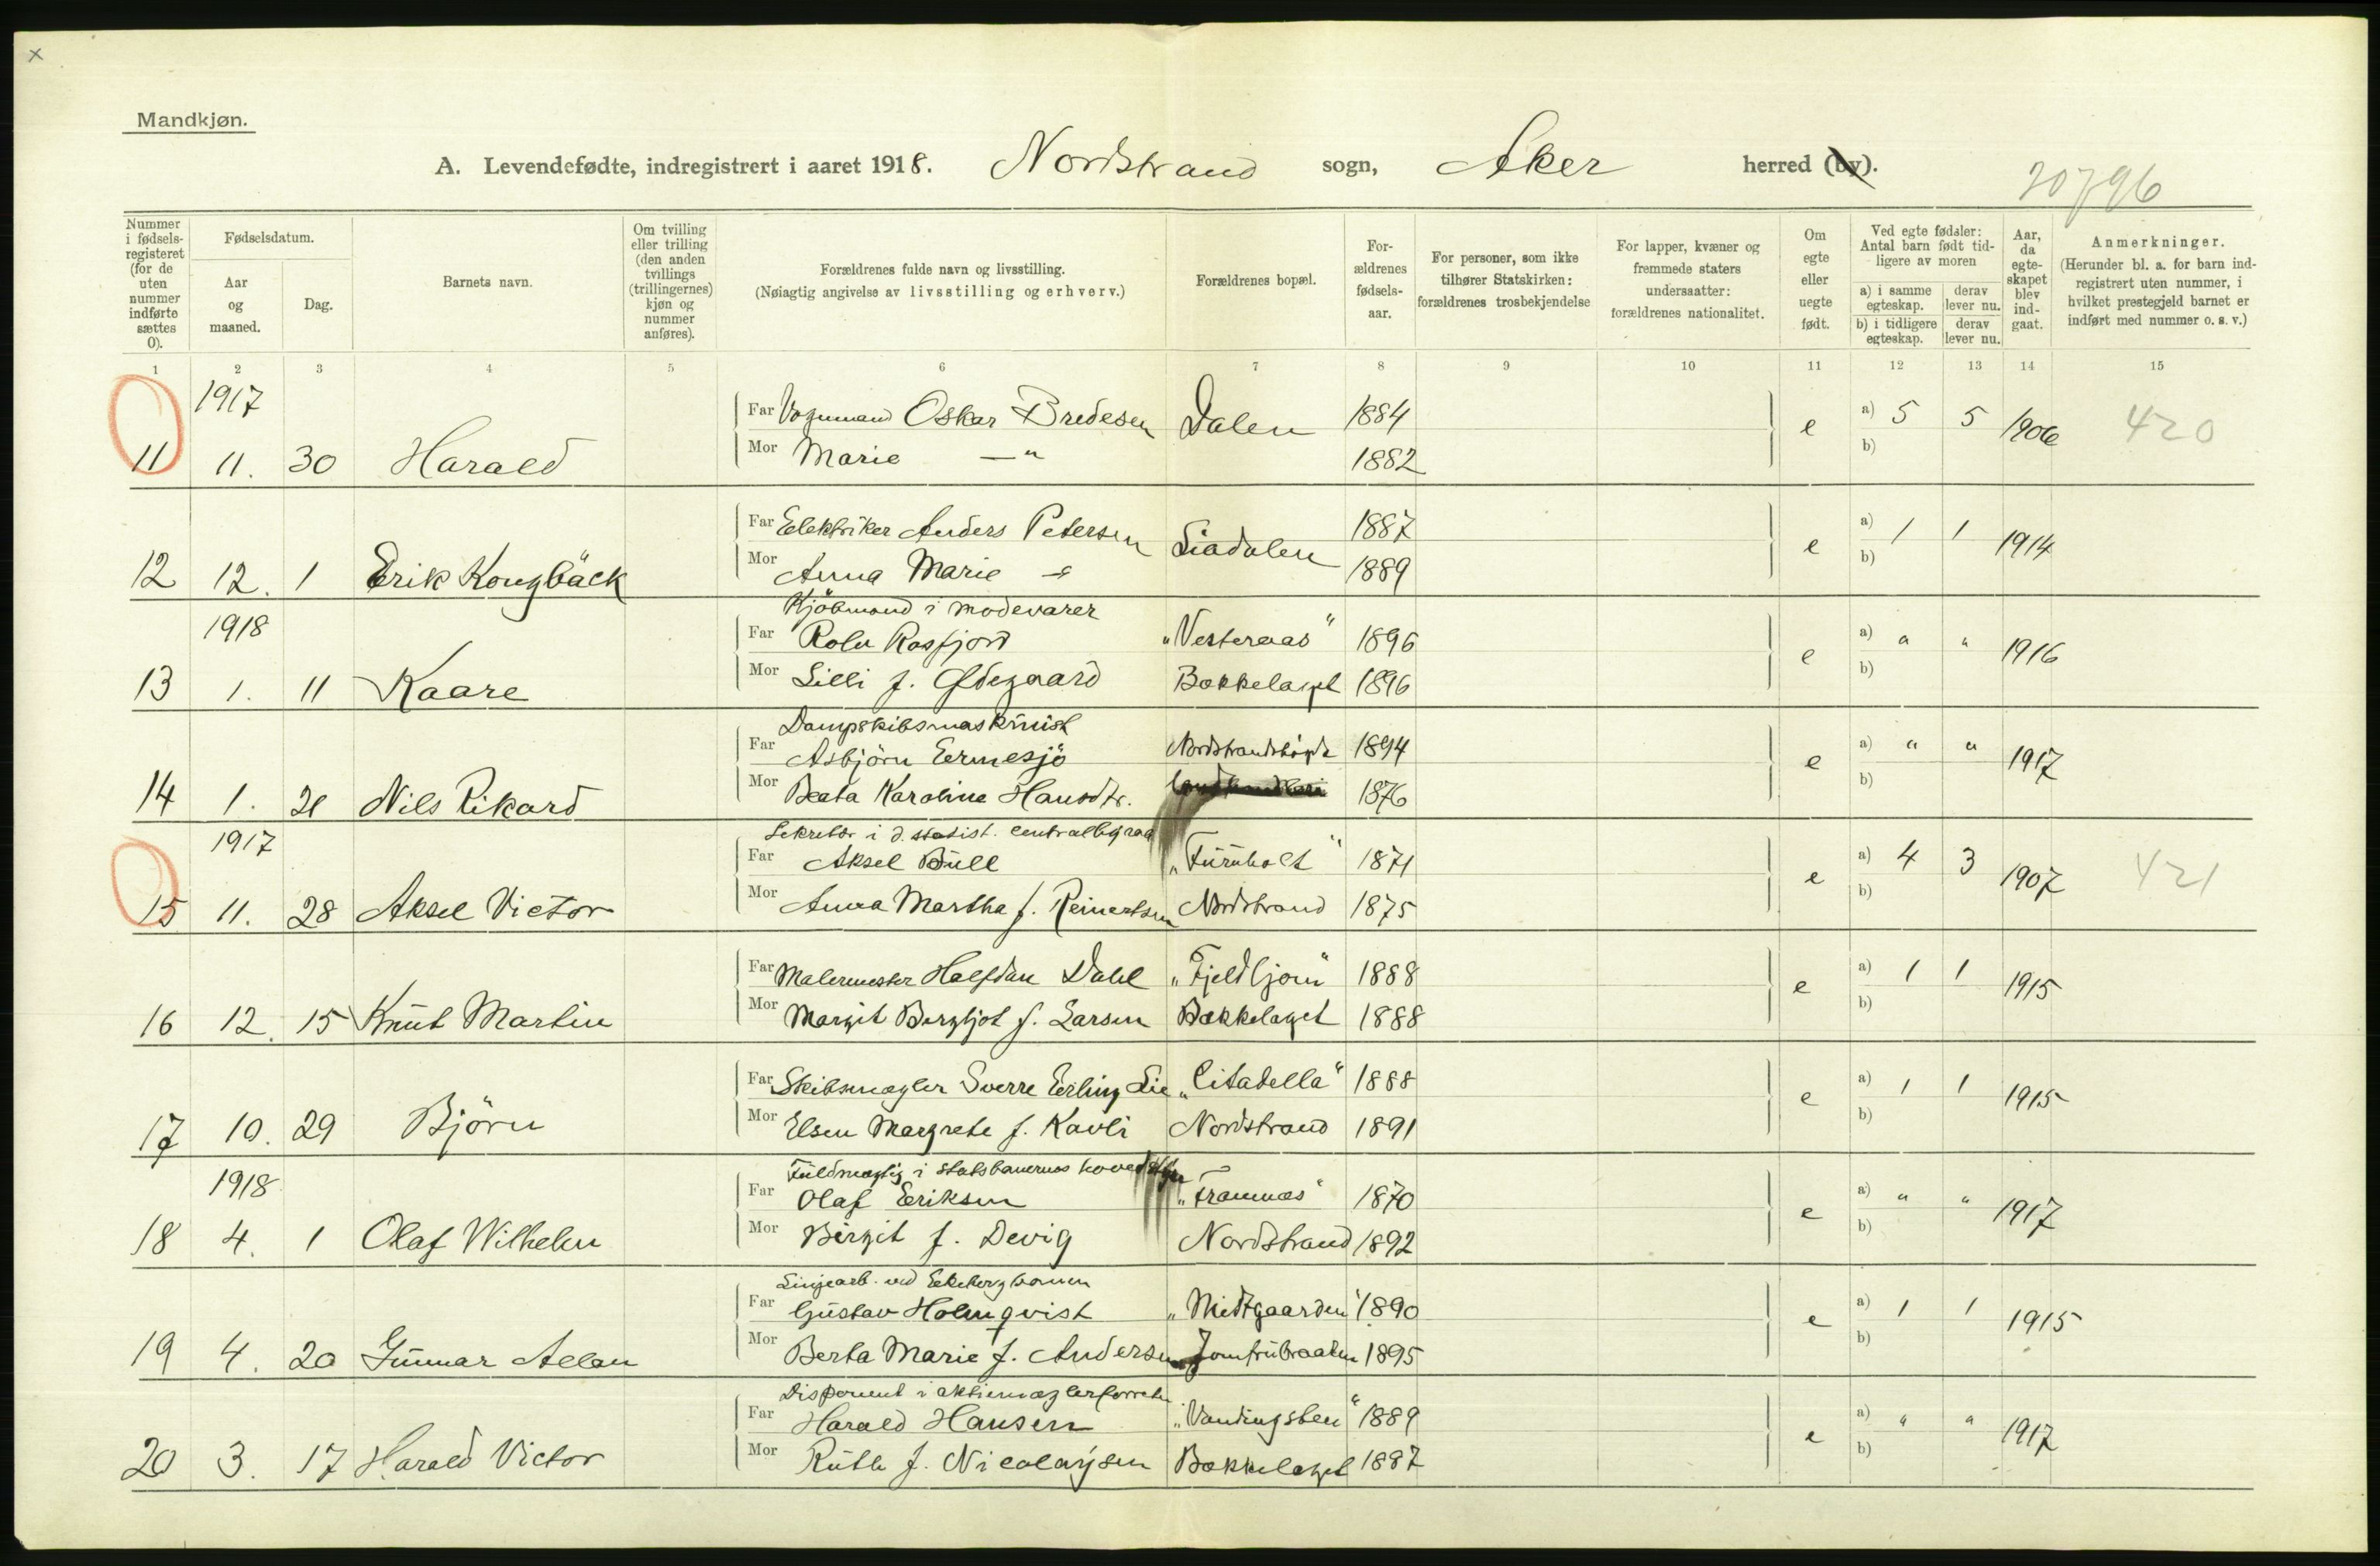 Mandkjøn.
A. Levendefødte, indregistrert i aaret 1918. Nordstrand sogn, Aker herred (by).
20796
Nummer i fødsels-registeret (for de uten nummer indførte sættes 0).
Fødselsdatum.
Aar og maaned.
Dag.
Barnets navn.
Om tvilling eller trilling (den anden tvillings (trillingernes) kjøn og nummer anføres).
Forældrenes fulde navn og livsstilling.
(Nøiagtig angivelse av livsstilling og erhverv.)
Forældrenes bopæl.
For-ældrenes fødsels-aar.
For personer, som ikke tilhører Statskirken: forældrenes trosbekjendelse
For lapper, kvæner og fremmede staters undersaatter: forældrenes nationalitet.
Om egte eller uegte født.
Ved egte fødsler: Antal barn født tid-ligere av moren
a) i samme egteskap. derav lever nu.
b) i tidligere egteskap. derav lever nu.
Aar, da egte-skapet blev ind-gaat.
Anmerkninger.
(Herunder bl. a. for barn ind-registrert uten nummer, i hvilket prestegjeld barnet er indført med nummer o. s. v.)
1 2 3 4 5 6 7 8 9 10 11 12 13 14 15
1917
Far Vognmand Oskar Bredesen Dalen 1884
11 11. 30 Harald Mor Marie —"— 1882 e a) 5 5 b) 1906 420
Far Elektriker Anders Petersen Liadalen 1887
12 12. 1 Erik Kongbäck Mor Anna Marie 1889 e a) 1 1 b) 1914
1918
Kjöbmand i modevarer
Far Rosfjord "Vesteraas" 1896
13 1. 11 Kaare Mor Lilli f. Ødegaard Bækkelaget 1896 e a) " " b) 1916
Dampskibsmaskinist
Far Asbjörn Ermesjö Nordstrandshögda 1894
14 1. 21 Nils Rikard Mor Beata Karoline Hansdtr. 1876 e a) " " b) 1917
1917
Sekretær i d. statist. centralbyraa
Far Aksel Bull "Furuholt" 1871
15 11. 28 Aksel Victor Mor Anna Martha f. Reinertsen Nordstrand 1875 e a) 4 3 b) 1907 421
Far Malermester Halfdan Dahl "Fjeldbjom" 1888
16 12. 15 Knut Martin Mor Margit Bergljot f. Larsen Bækkelaget 1888 e a) 1 1 b) 1915
Far Skibsmægler Sverre Erling Lie "Citadella" 1888
17 10. 29 Björn Mor Elsen Margrete f. Kavli Nordstrand 1891 e a) 1 1 b) 1915
1918
Fuldmægtig i statsbanernes hovedstyre
Far Olaf Eriksen "Framnæs" 1870
18 4. 1 Olaf Wilhelm Mor Birgit f. Devig Nordstrand 1892 e a) " " b) 1917
Linjearb. ved Ekebergbanen
Far Gustav Holmqvist "Midtgaarden" 1890
19 4. 20 Gunnar Allan Mor Berta Marie f. Andersen Jomfrubraaten 1895 e a) 1 1 b) 1915
Disponent i aktiemæglerforretn
Far Harald Hansen "Vandingsten" 1889
20 3. 17 Harald Victor Mor Ruth f. Nicolaysen Bækkelaget 1887 e a) " " b) 1917